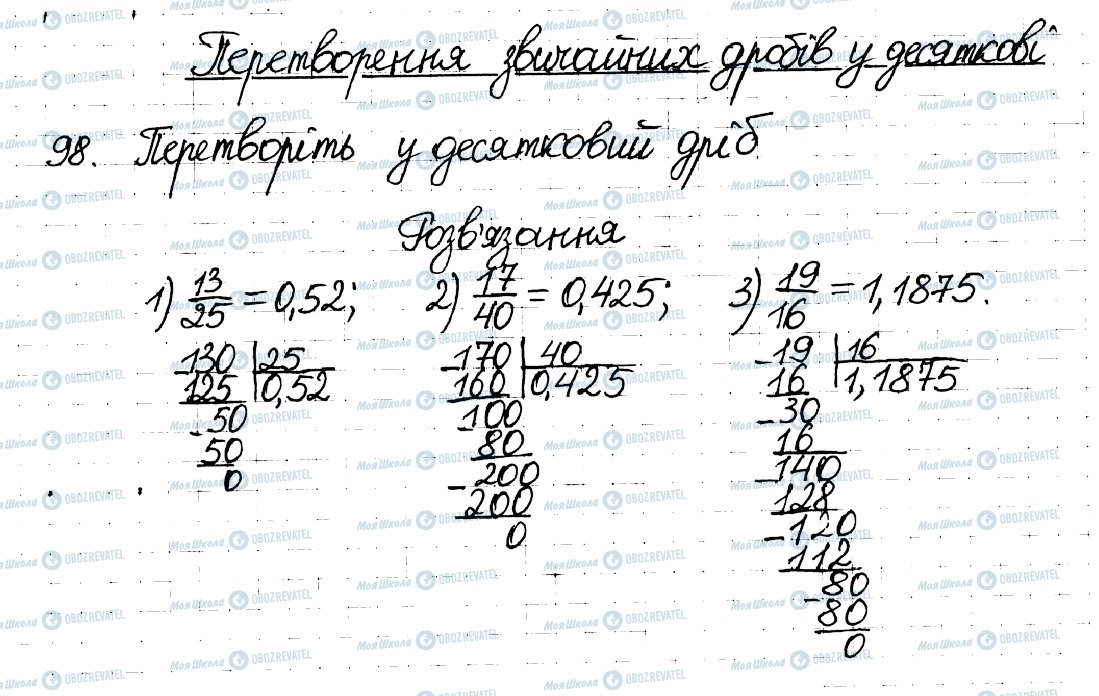 Перетворення звичайних дробів у десяткові
98. Перетворіть у десятковий дріб.
Розв'язання
1) 13/25 = 0,52; 2) 17/40 = 0,425; 3) 19/16 = 1,1875.
130 | 25
125 | 0,52
- 50
50
0
- 170 | 40
160 | 0,425
- 100
80
- 200
200
0
- 19 | 16
16 | 1,1875
- 30
16
- 140
128
- 120
112
- 80
80
0
Моя Школа OBOZREVATEL